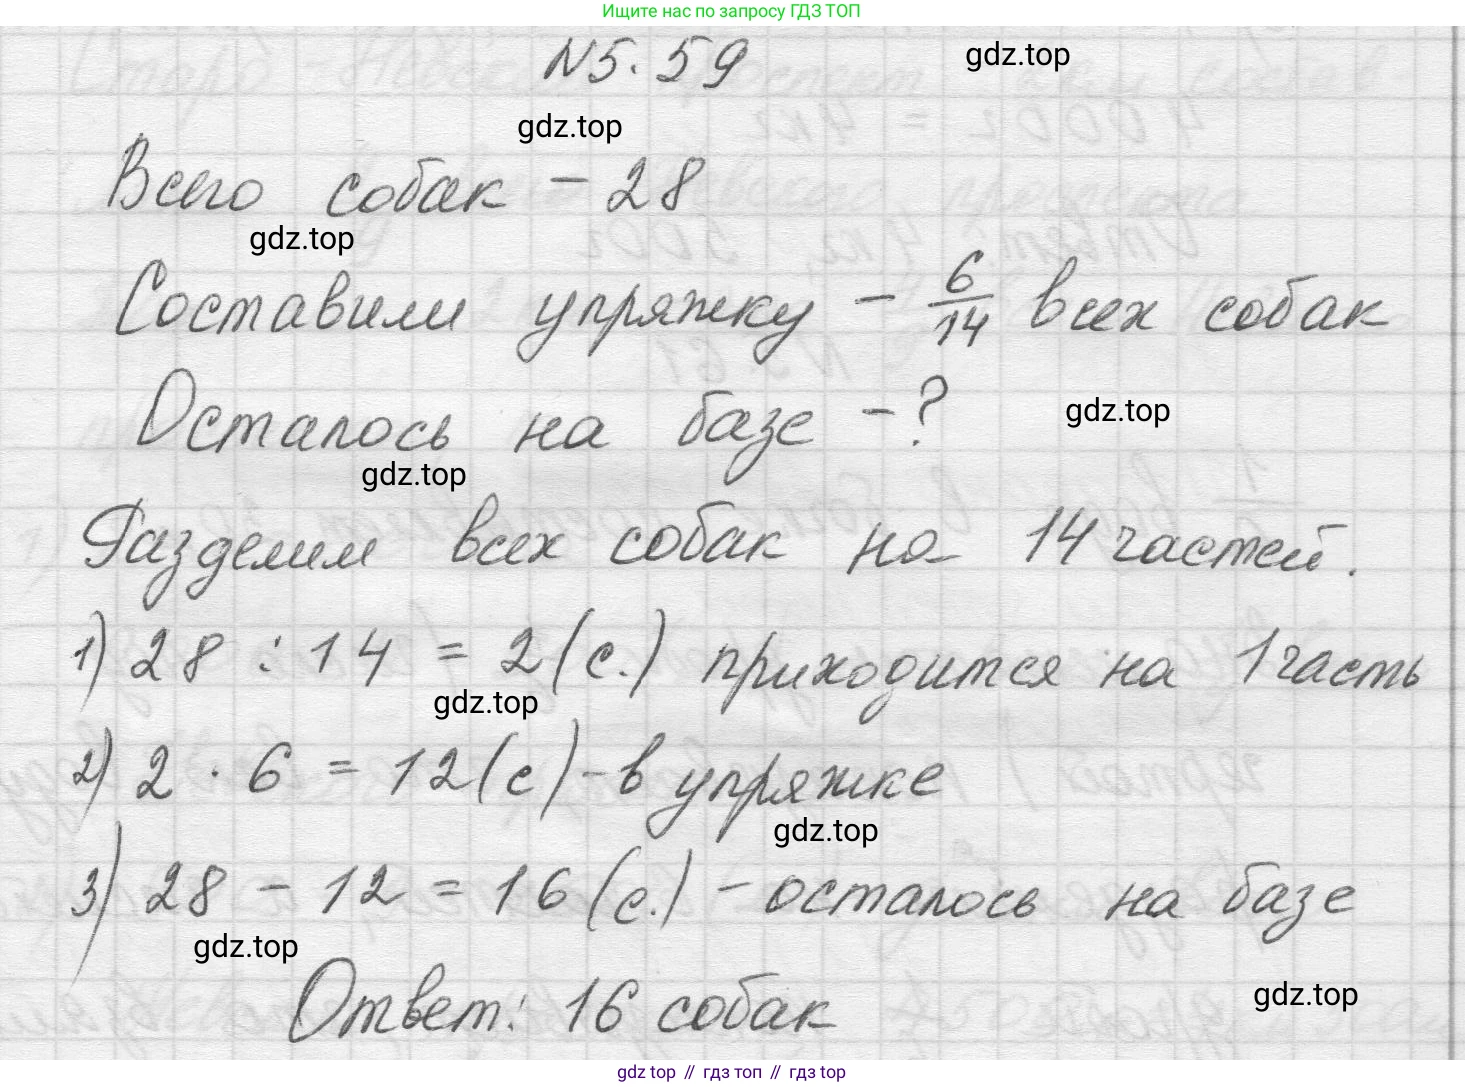 Ищите нас по запросу ГДЗ ТОП
N5.59
gdz.top
gdz.top
Всего собак - 28
gdz.top
Составили упряжку - 6/14 всех собак
Осталось на базе - ?
gdz.top
gdz.top
Разделим всех собак на 14 частей.
1) 28 : 14 = 2 (с.) приходится на 1 часть
gdz.top
2) 2 · 6 = 12 (с) - в упряжке
gdz.top
3) 28 - 12 = 16 (с.) - осталось на базе
gdz.top
Ответ: 16 собак
gdz.top
gdz top // гдз топ // гдз top